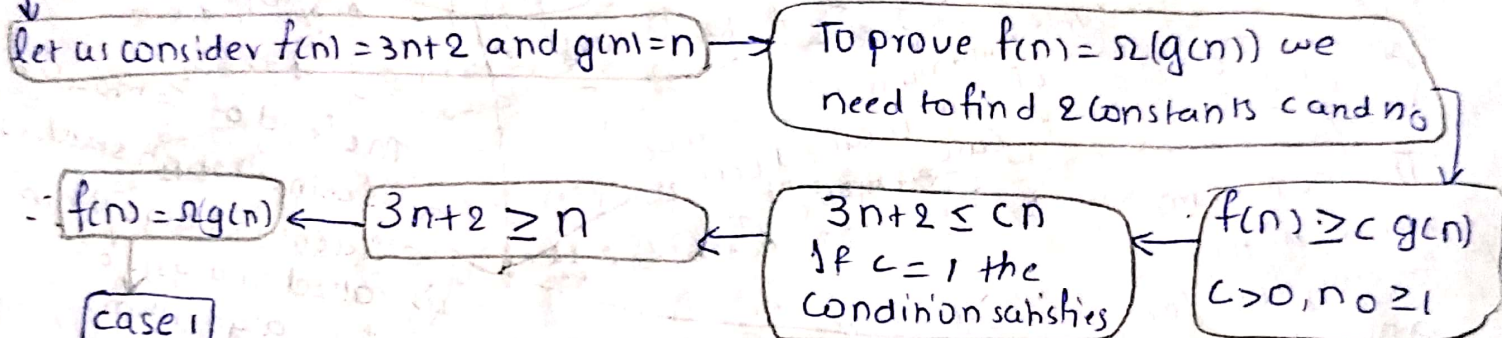 let us consider f(n) = 3n+2 and g(n) = n
To prove f(n) = Ω(g(n)) we
need to find 2 constants c and n₀
f(n) ≥ c g(n)
c>0, n₀ ≥1
3n+2 ≤ cn
If c=1 the
condition satisfies
3n+2 ≥ n
∴ f(n) = Ωg(n)
case 1